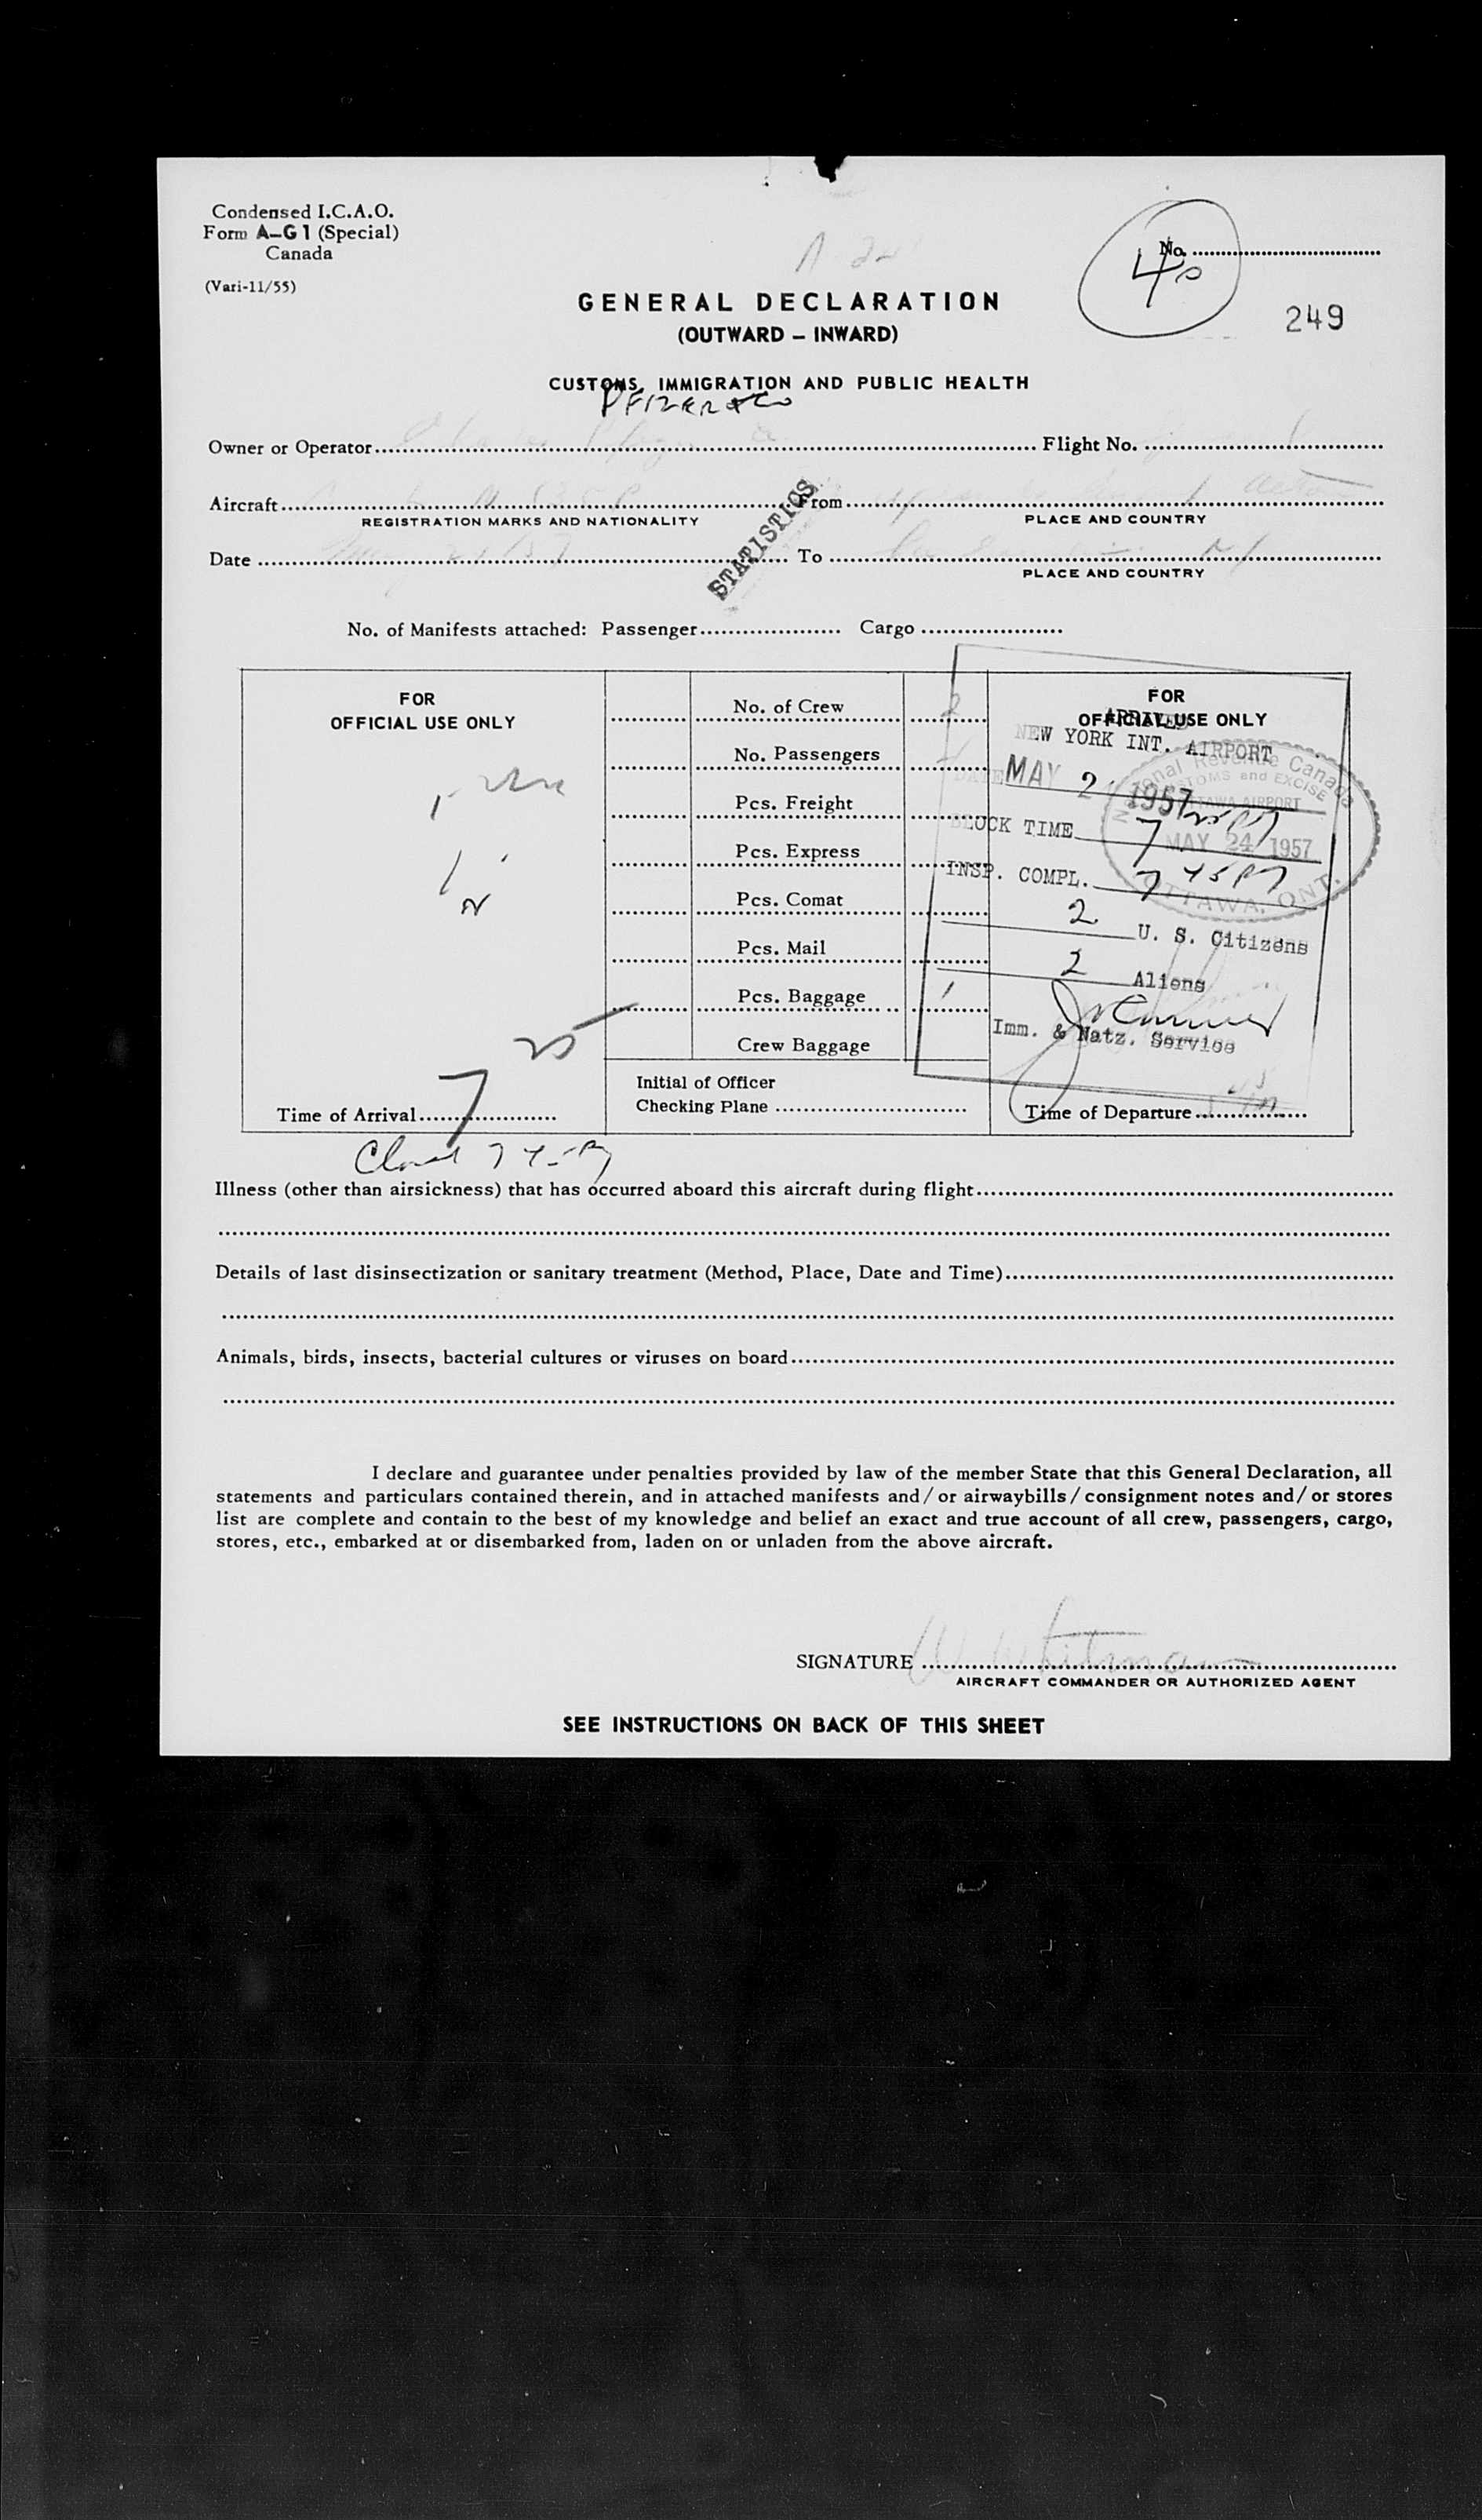 Condensed I.C.A.O.
Form A–G1 (Special)
Canada
(Vari-11/55)
No. ........
40
249
GENERAL DECLARATION
(OUTWARD – INWARD)
CUSTOMS, IMMIGRATION AND PUBLIC HEALTH
PFIZER & CO
Owner or Operator ........ Flight No. ........
Aircraft ........ From ........
REGISTRATION MARKS AND NATIONALITY PLACE AND COUNTRY
STATISTICS
Date ........ To ........
PLACE AND COUNTRY
No. of Manifests attached: Passenger ........ Cargo ........
FOR
OFFICIAL USE ONLY
No. of Crew 2
No. Passengers
Pcs. Freight
Pcs. Express
Pcs. Comat
Pcs. Mail
Pcs. Baggage 1
Crew Baggage
Initial of Officer
Checking Plane ........
FOR
OFFICIAL USE ONLY
ARRIVED
NEW YORK INT. AIRPORT
DATE MAY 2 1957
BLOCK TIME 7 25 PM
INSP. COMPL. 7 45 PM
2 U. S. Citizens
2 Aliens
Imm. & Natz. Service
National Revenue Canada
CUSTOMS and EXCISE
OTTAWA AIRPORT
MAY 24 1957
OTTAWA, ONT.
Time of Arrival 7 25
Time of Departure ........
Closed 7 45 P
Illness (other than airsickness) that has occurred aboard this aircraft during flight ........
Details of last disinsectization or sanitary treatment (Method, Place, Date and Time) ........
Animals, birds, insects, bacterial cultures or viruses on board ........
I declare and guarantee under penalties provided by law of the member State that this General Declaration, all
statements and particulars contained therein, and in attached manifests and/or airwaybills/consignment notes and/or stores
list are complete and contain to the best of my knowledge and belief an exact and true account of all crew, passengers, cargo,
stores, etc., embarked at or disembarked from, laden on or unladen from the above aircraft.
SIGNATURE W Whitman
AIRCRAFT COMMANDER OR AUTHORIZED AGENT
SEE INSTRUCTIONS ON BACK OF THIS SHEET